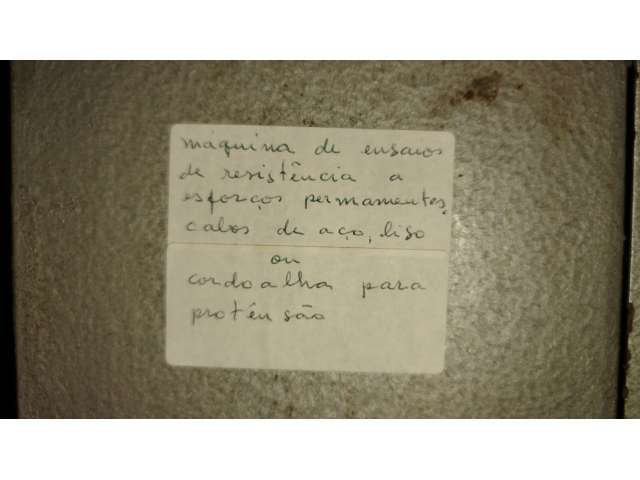 máquina de ensaios
de resistência a
esforços permamentes,
cabos de aço, liso
ou
cordoalha para
protênsão